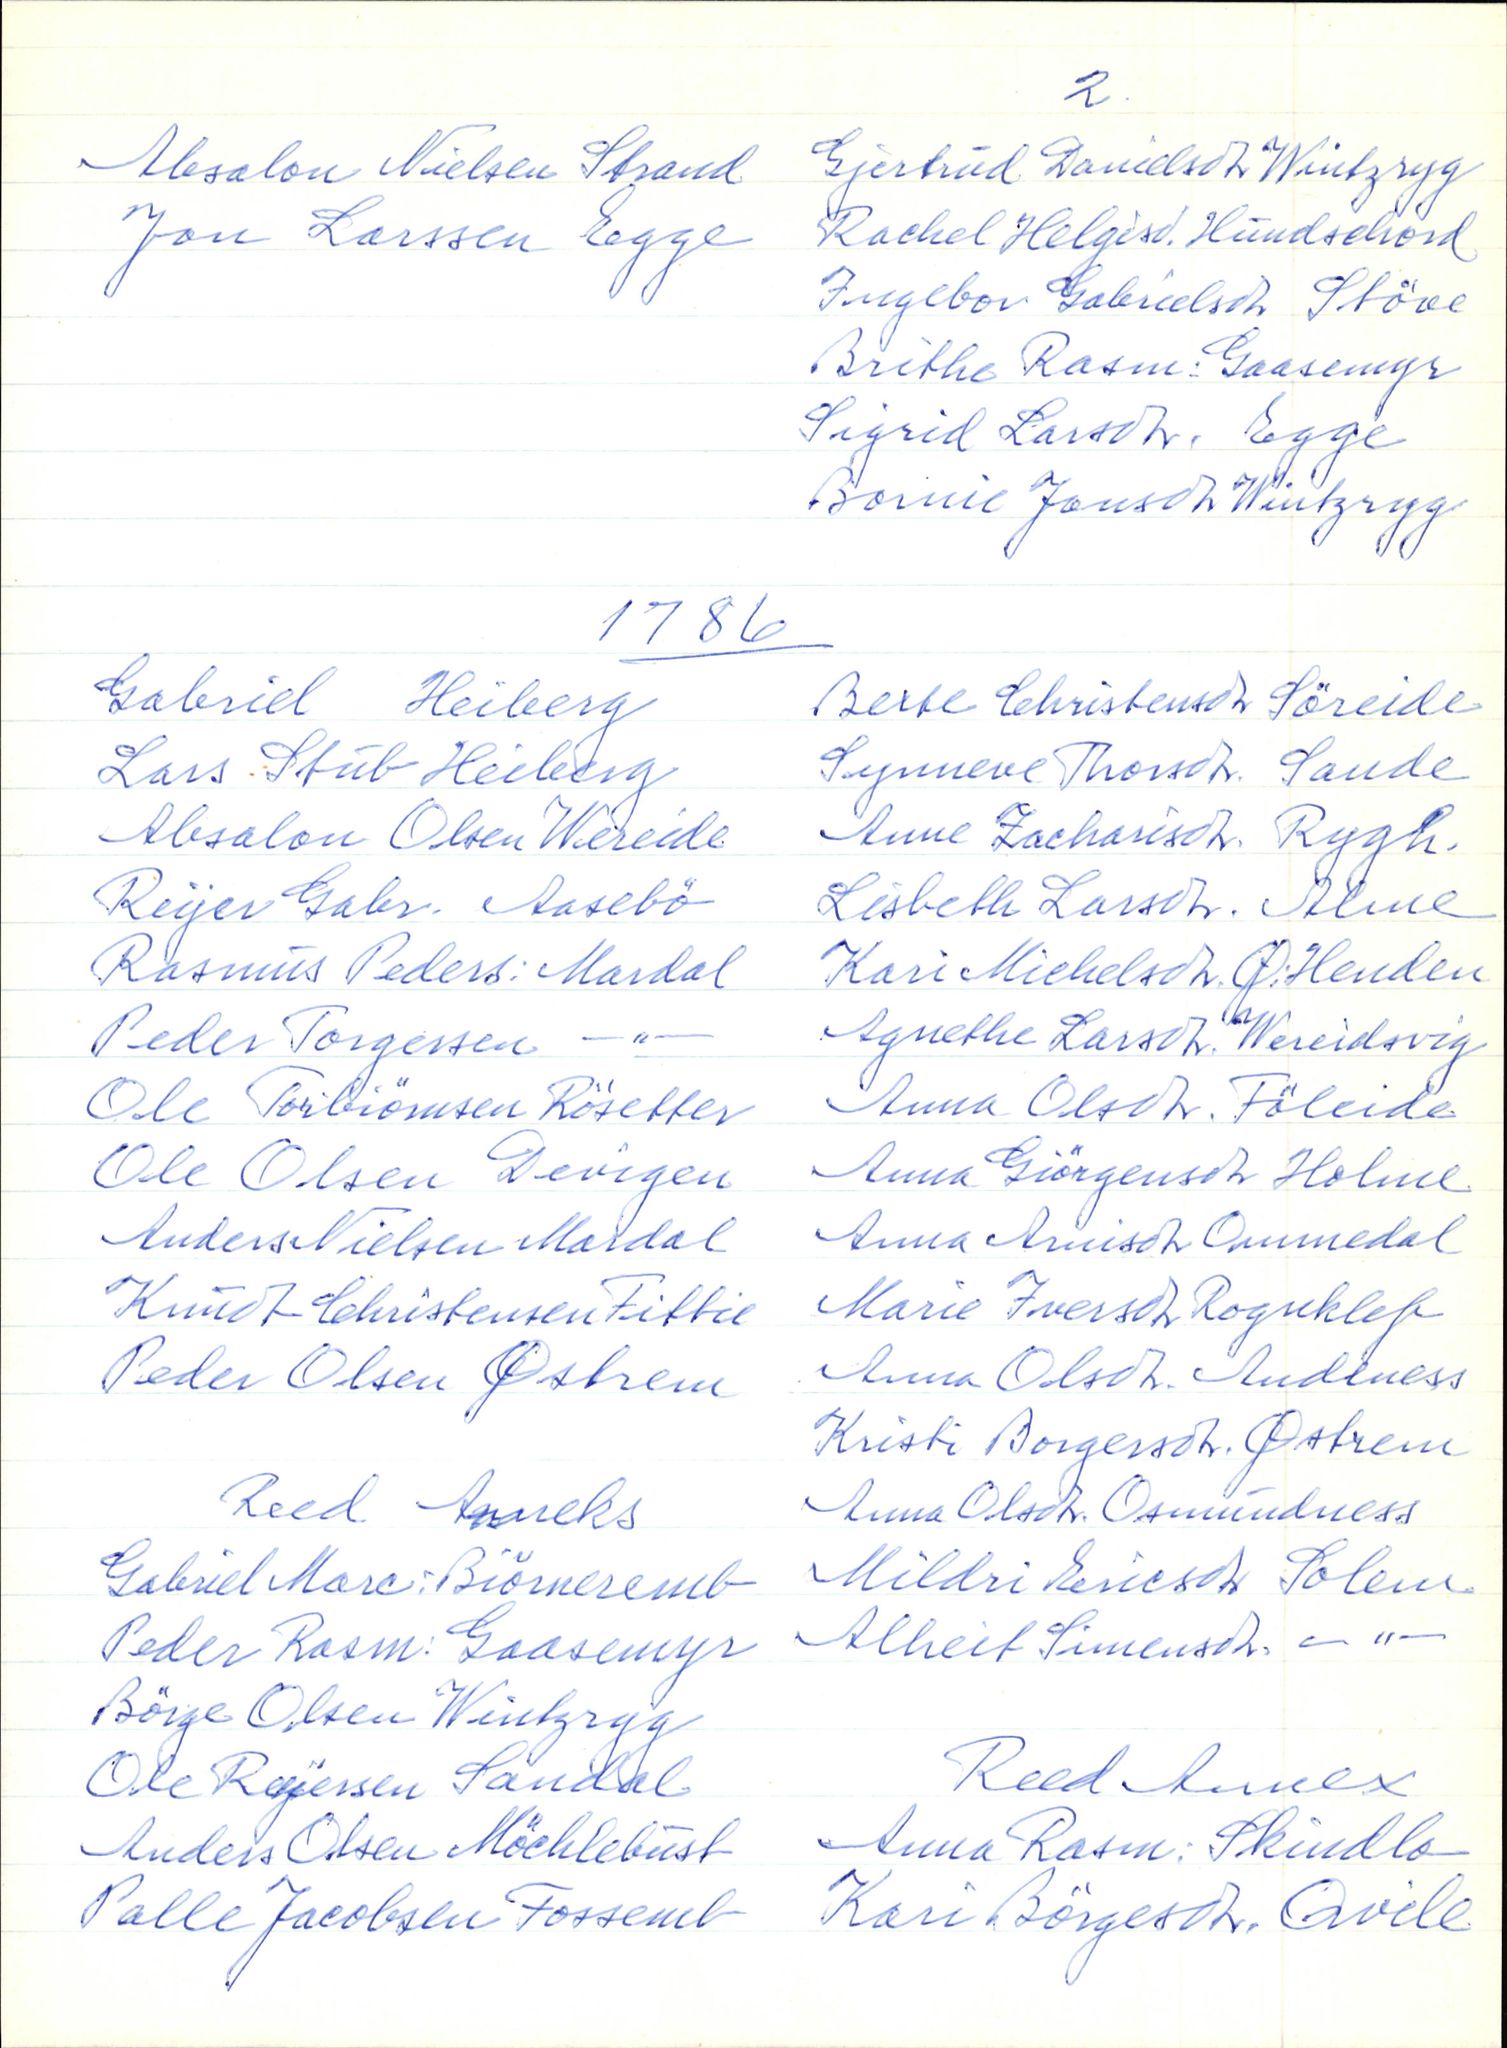 2.
Absalon Nielsen Strand
Jon Larssen Egge
Gjertrud Danielsdtr Wintzryg
Rachel Helgisd. Hundschord
Ingebor Gabrielsdtr Støve
Brithe Rasm: Gaasemyr
Sigrid Larsdtr. Egge
Bornie Jonsdtr Wintzryg
1786
Gabriel Heiberg
Lars Stub Heiberg
Absalon Olsen Wereide
Reijer Gabr. Aasebö
Rasmus Peders: Mardal
Peder Torgersen —"—
Ole Torbiörnsen Rösetter
Ole Olsen Devigen
Anders Nielsen Mardal
Knudt Christensen Fittie
Peder Olsen Østrem
Reed Anneks
Gabriel Marc: Biörneremb
Peder Rasm: Gaasemyr
Börge Olsen Wintzryg
Ole Reijersen Sandal
Anders Olsen Möchlebust
Palle Jacobsen Fossemb
Berte Christensdtr Söreide
Synneve Thorsdtr. Sande
Anne Zacharisdtr. Rygh.
Lisbeth Larsdtr. Alme
Kari Michelsdtr. Ø: Henden
Agnethe Larsdtr. Wereidsvig
Anna Olsdtr. Föleide
Anna Giörgensdtr Holme
Anna Arnisdtr Ommedal
Marie Iversdtr Rognklep
Anna Olsdtr. Andeness
Kristi Borgersdtr. Østrem
Anna Olsdtr. Osmundness
Mildri Ericsdtr Solem
Alheit Simensdtr. —"—
Reed Annex
Anna Rasm: Skindlo
Kari Börgesdtr. Qvile